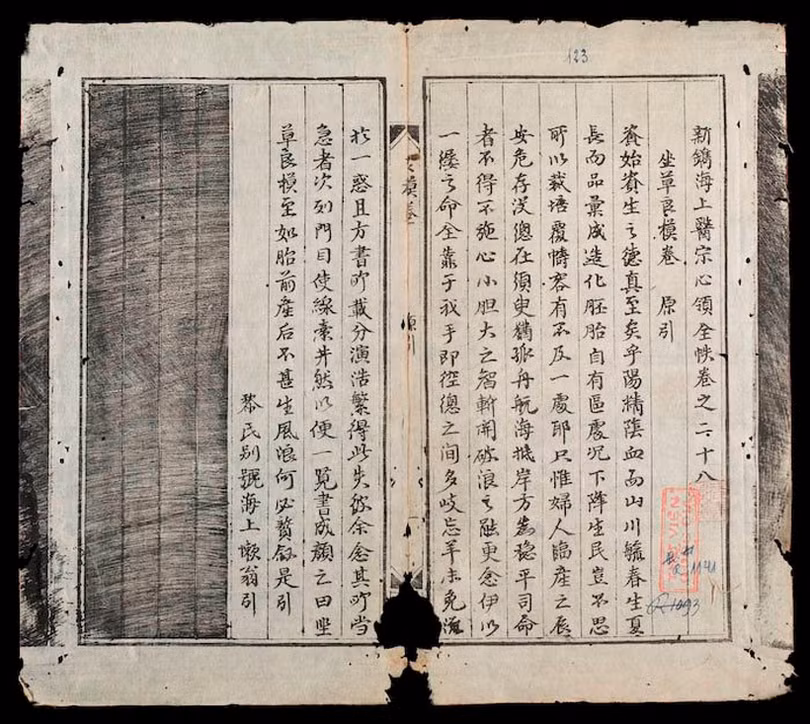 123
新鐫海上醫宗心領全帙卷之二十八
坐草良模卷 原引
資始資生之德真至矣乎陽精陰血而山川毓春生夏
長而品彙成造化胚胎自有區處况下降生民豈不思
所以栽培覆幬容有不及一處耶只惟婦人臨產之辰
安危存没總在須臾猶孤舟航海抵岸方為穩平司命
者不得不施心小胆大之智斬開破浪之能更念伊以
一縷之命全靠于我手即徑總之間多岐忘羊未免滋
模卷 原引
於一惑且方書所載分演浩繁得此失彼余念其所當
急者次列門目使線索井然以便一覧書成顏之曰坐
草良模至如胎前產后不甚生風浪何必贅叙是引
黎氏别號海上懶翁引